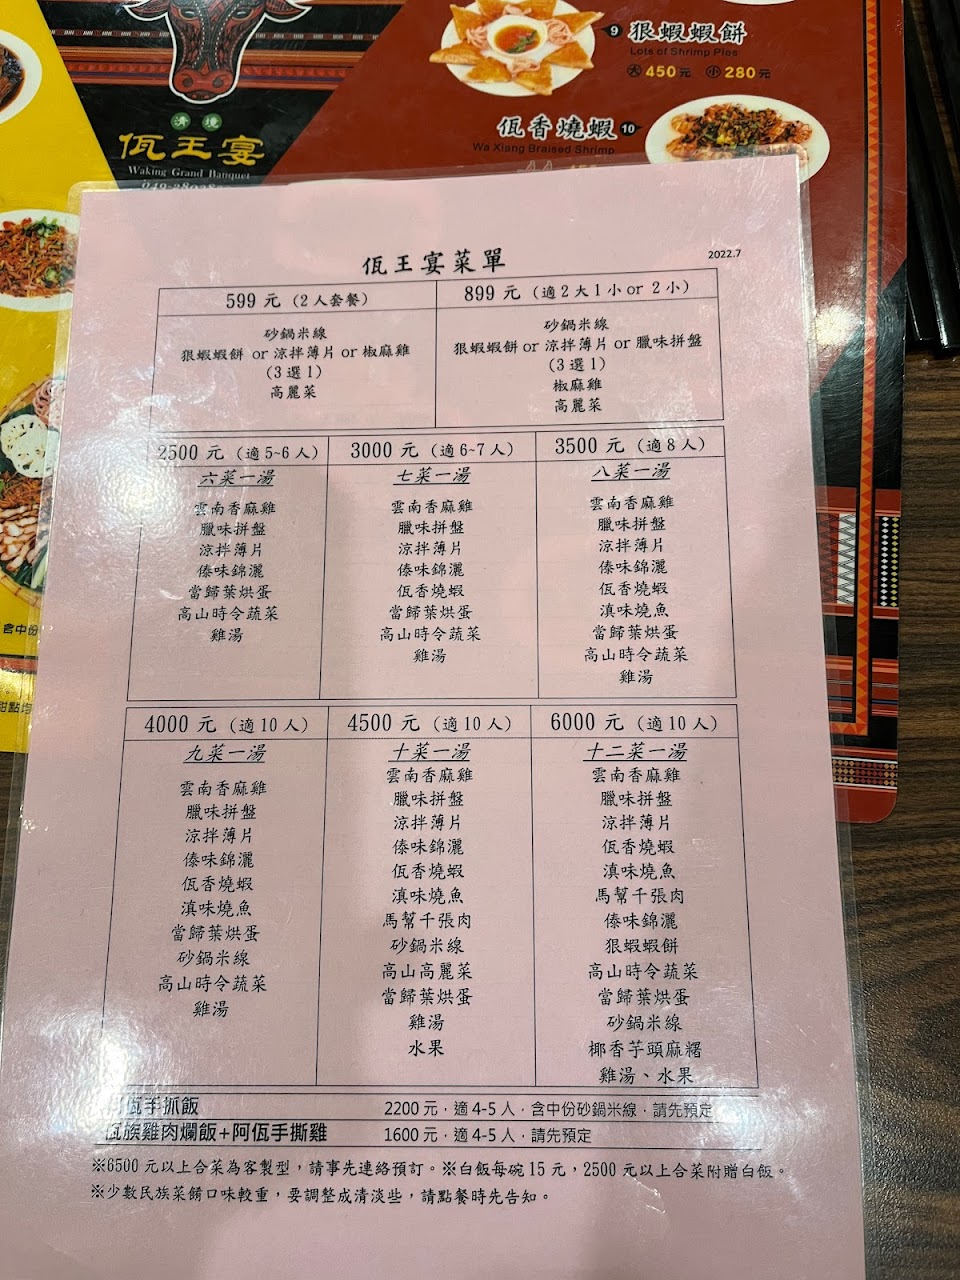 9 狠蝦蝦餅
Lots of Shrimp Pies
大 450元 小 280元
清境
佤王宴
Waking Grand Banquet
佤香燒蝦 10
Wa Xiang Braised Shrimp
佤王宴菜單
2022.7
599 元（2人套餐）
砂鍋米線
狠蝦蝦餅 or 涼拌薄片 or 椒麻雞
（3 選 1）
高麗菜
899 元（適 2 大 1 小 or 2 小）
砂鍋米線
狠蝦蝦餅 or 涼拌薄片 or 臘味拼盤
（3 選 1）
椒麻雞
高麗菜
2500 元（適 5~6 人）
六菜一湯
雲南香麻雞
臘味拼盤
涼拌薄片
傣味錦灑
當歸葉烘蛋
高山時令蔬菜
雞湯
3000 元（適 6~7 人）
七菜一湯
雲南香麻雞
臘味拼盤
涼拌薄片
傣味錦灑
佤香燒蝦
當歸葉烘蛋
高山時令蔬菜
雞湯
3500 元（適 8 人）
八菜一湯
雲南香麻雞
臘味拼盤
涼拌薄片
傣味錦灑
佤香燒蝦
滇味燒魚
當歸葉烘蛋
高山時令蔬菜
雞湯
4000 元（適 10 人）
九菜一湯
雲南香麻雞
臘味拼盤
涼拌薄片
傣味錦灑
佤香燒蝦
滇味燒魚
當歸葉烘蛋
砂鍋米線
高山時令蔬菜
雞湯
4500 元（適 10 人）
十菜一湯
雲南香麻雞
臘味拼盤
涼拌薄片
傣味錦灑
佤香燒蝦
滇味燒魚
馬幫千張肉
砂鍋米線
高山高麗菜
當歸葉烘蛋
雞湯
水果
6000 元（適 10 人）
十二菜一湯
雲南香麻雞
臘味拼盤
涼拌薄片
佤香燒蝦
滇味燒魚
馬幫千張肉
傣味錦灑
狠蝦蝦餅
高山時令蔬菜
當歸葉烘蛋
砂鍋米線
椰香芋頭麻糬
雞湯、水果
佤手抓飯 2200 元．適 4-5 人．含中份砂鍋米線．請先預定
佤族雞肉爛飯+阿佤手撕雞 1600 元．適 4-5 人．請先預定
※6500 元以上合菜為客製型，請事先連絡預訂。※白飯每碗 15 元，2500 元以上合菜附贈白飯。
※少數民族菜餚口味較重，要調整成清淡些，請點餐時先告知。
含中份
甜點均